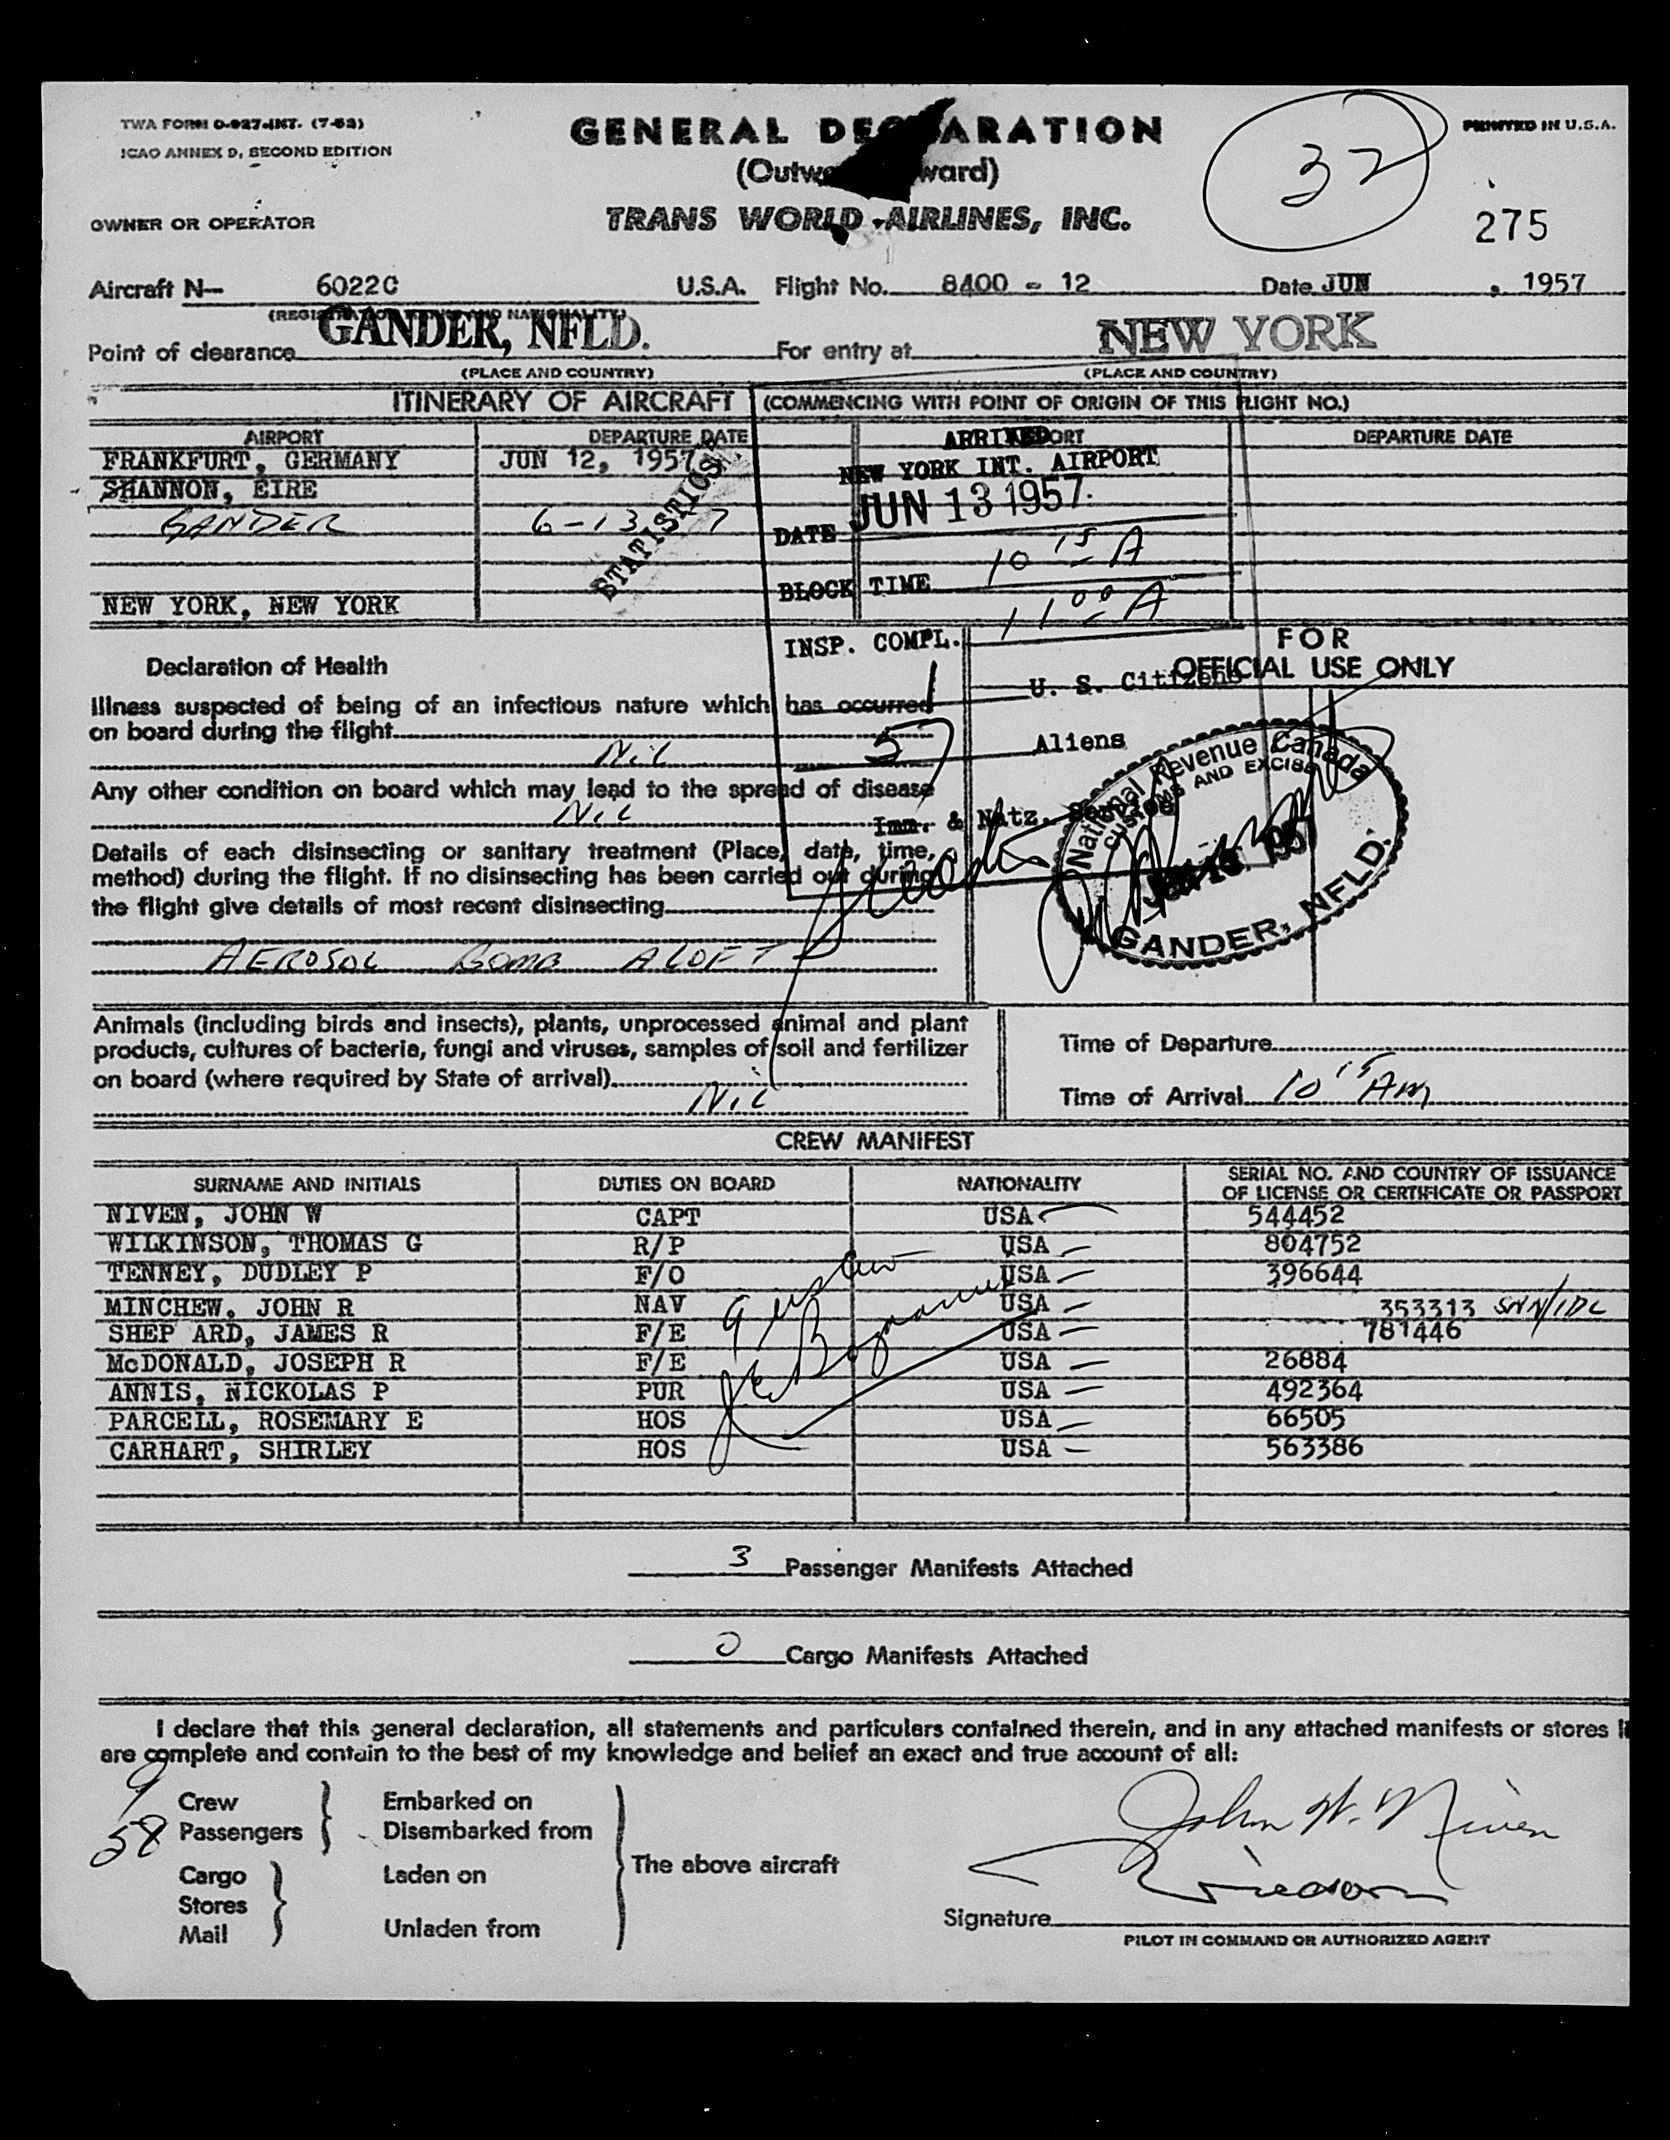 TWA FORM O-927-INT. (7-52)
ICAO ANNEX 9, SECOND EDITION
GENERAL DE ARATION
(Outw ward)
PRINTED IN U.S.A.
32
275
OWNER OR OPERATOR
TRANS WORLD AIRLINES, INC.
Aircraft N— 6022C U.S.A. Flight No. 8400 - 12 Date JUN , 1957
GANDER, NFLD.
NEW YORK
Point of clearance For entry at
(PLACE AND COUNTRY) (PLACE AND COUNTRY)
ITINERARY OF AIRCRAFT (COMMENCING WITH POINT OF ORIGIN OF THIS FLIGHT NO.)
AIRPORT DEPARTURE DATE DEPARTURE DATE
ARRIVED
FRANKFURT, GERMANY JUN 12, 1957
NEW YORK INT. AIRPORT
SHANNON, EIRE
JUN 13 1957
GANDER 6-13 7
STATISTICS
DATE
10 15 A
BLOCK TIME
NEW YORK, NEW YORK
11 00 A
INSP. COMPL.
FOR
OFFICIAL USE ONLY
Declaration of Health
U. S. Citizens
Illness suspected of being of an infectious nature which has occurred
on board during the flight
Nil
57
Aliens
Any other condition on board which may lead to the spread of disease
Nil
Imm. & Natz.
National Revenue Canada
CUSTOMS AND EXCISE
GANDER, NFLD.
Details of each disinsecting or sanitary treatment (Place, date, time,
method) during the flight. If no disinsecting has been carried out during
the flight give details of most recent disinsecting
AEROSOL BOMB ALOFT
Animals (including birds and insects), plants, unprocessed animal and plant
products, cultures of bacteria, fungi and viruses, samples of soil and fertilizer
on board (where required by State of arrival)
Nil
Time of Departure
Time of Arrival 10 15 AM
CREW MANIFEST
SURNAME AND INITIALS DUTIES ON BOARD NATIONALITY SERIAL NO. AND COUNTRY OF ISSUANCE
OF LICENSE OR CERTIFICATE OR PASSPORT
NIVEN, JOHN W CAPT USA 544452
WILKINSON, THOMAS G R/P USA 804752
TENNEY, DUDLEY P F/O USA 396644
MINCHEW, JOHN R NAV USA 353313 SNN/IDL
SHEP ARD, JAMES R F/E USA 781446
McDONALD, JOSEPH R F/E USA 26884
ANNIS, NICKOLAS P PUR USA 492364
PARCELL, ROSEMARY E HOS USA 66505
CARHART, SHIRLEY HOS USA 563386
3 Passenger Manifests Attached
0 Cargo Manifests Attached
I declare that this general declaration, all statements and particulars contained therein, and in any attached manifests or stores li
are complete and contain to the best of my knowledge and belief an exact and true account of all:
9 Crew Embarked on
58 Passengers Disembarked from
The above aircraft
Cargo Laden on
Stores
Mail Unladen from
John W. Niven
Signature
PILOT IN COMMAND OR AUTHORIZED AGENT